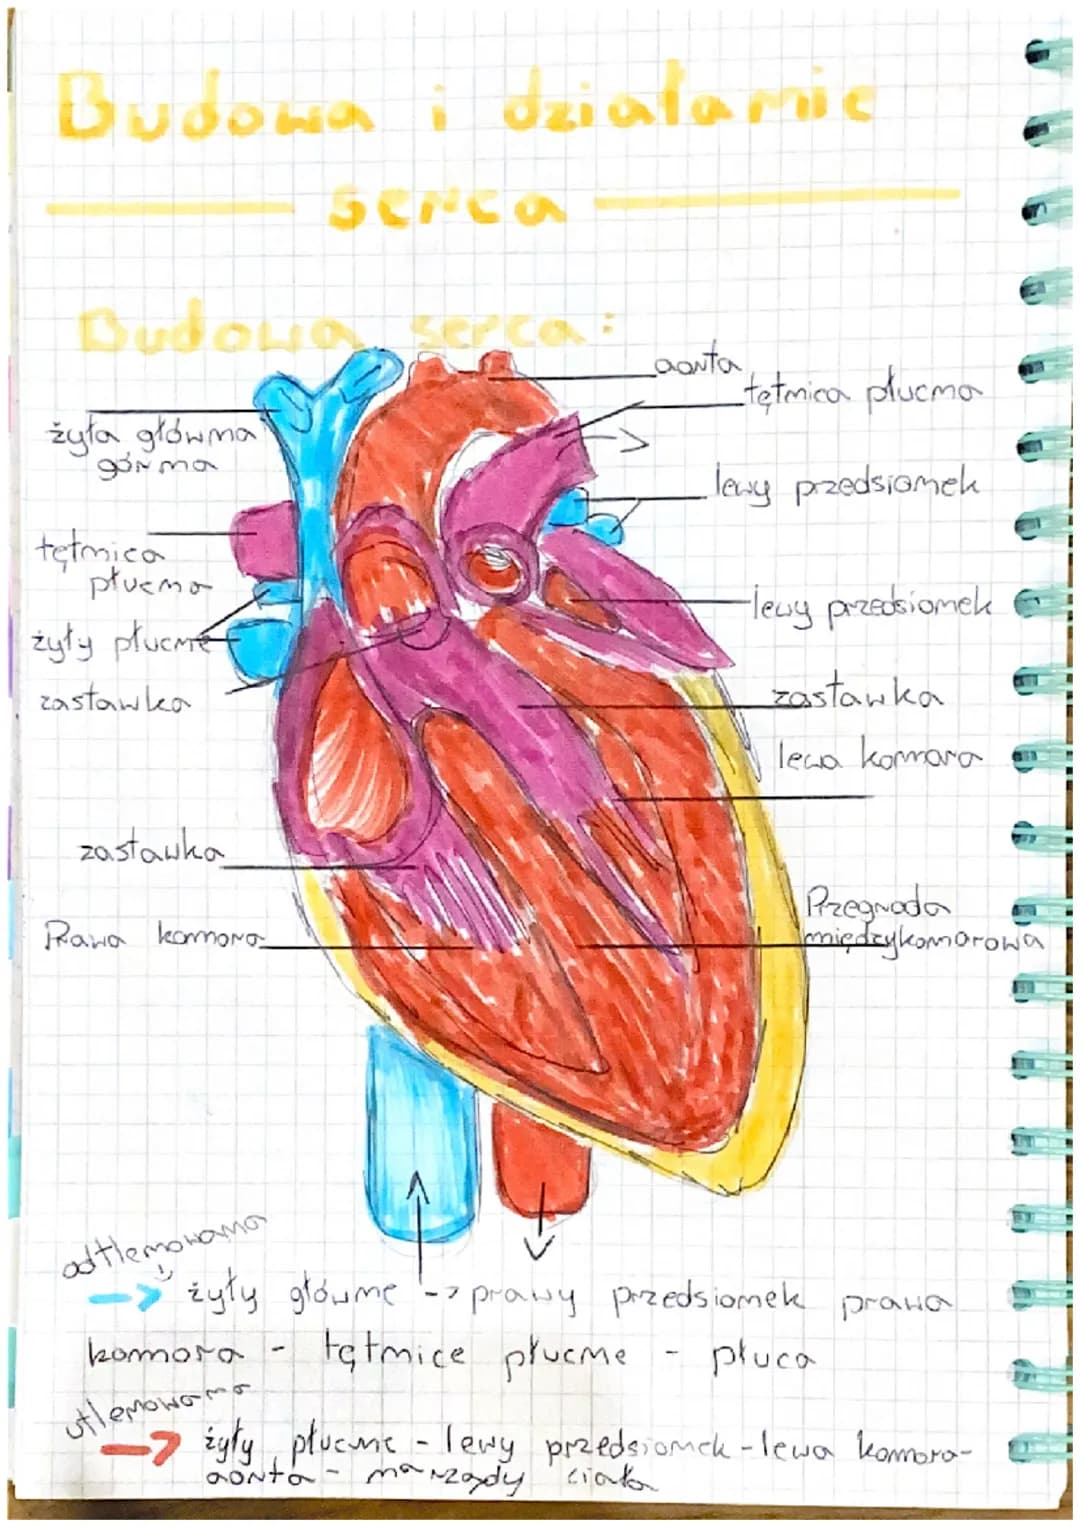 Budowa i działanie
serca
Budowa serca:
aorta
tętnica płucna
żyła główna
górna
lewy przedsionek
tętnica
płucna
lewy przedsionek
żyły płucne
zastawka
zastawka
lewa komora
zastawka
Przegroda
międzykomorowa
Prawa komora
odtlenowana
żyły główne -> prawy przedsionek prawa
komora - tętnice płucne - płuca
utlenowana
żyły płucne - lewy przedsionek - lewa komora -
aorta - narządy ciała